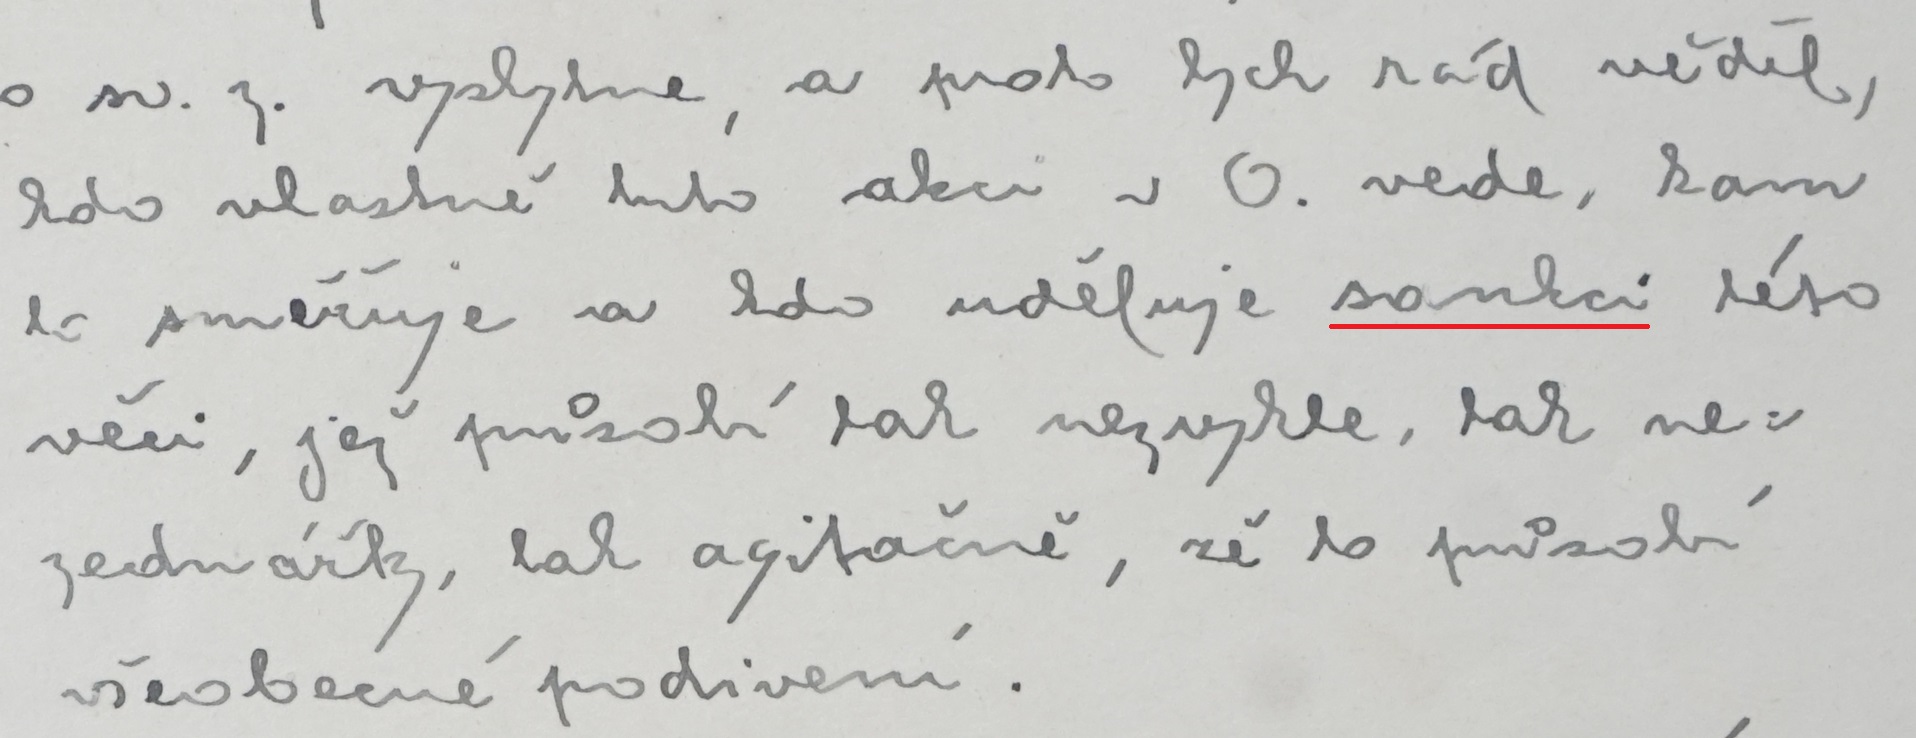 o sv. z. vyskytne, a proto bych rád věděl,
kdo vlastně tuto akci v O. vede, kam
to směřuje a kdo uděluje sankci této
věci, jež působí tak nezvykle, tak ne=
zednářsky, tak agitačně, že to působí
všeobecné podivení.